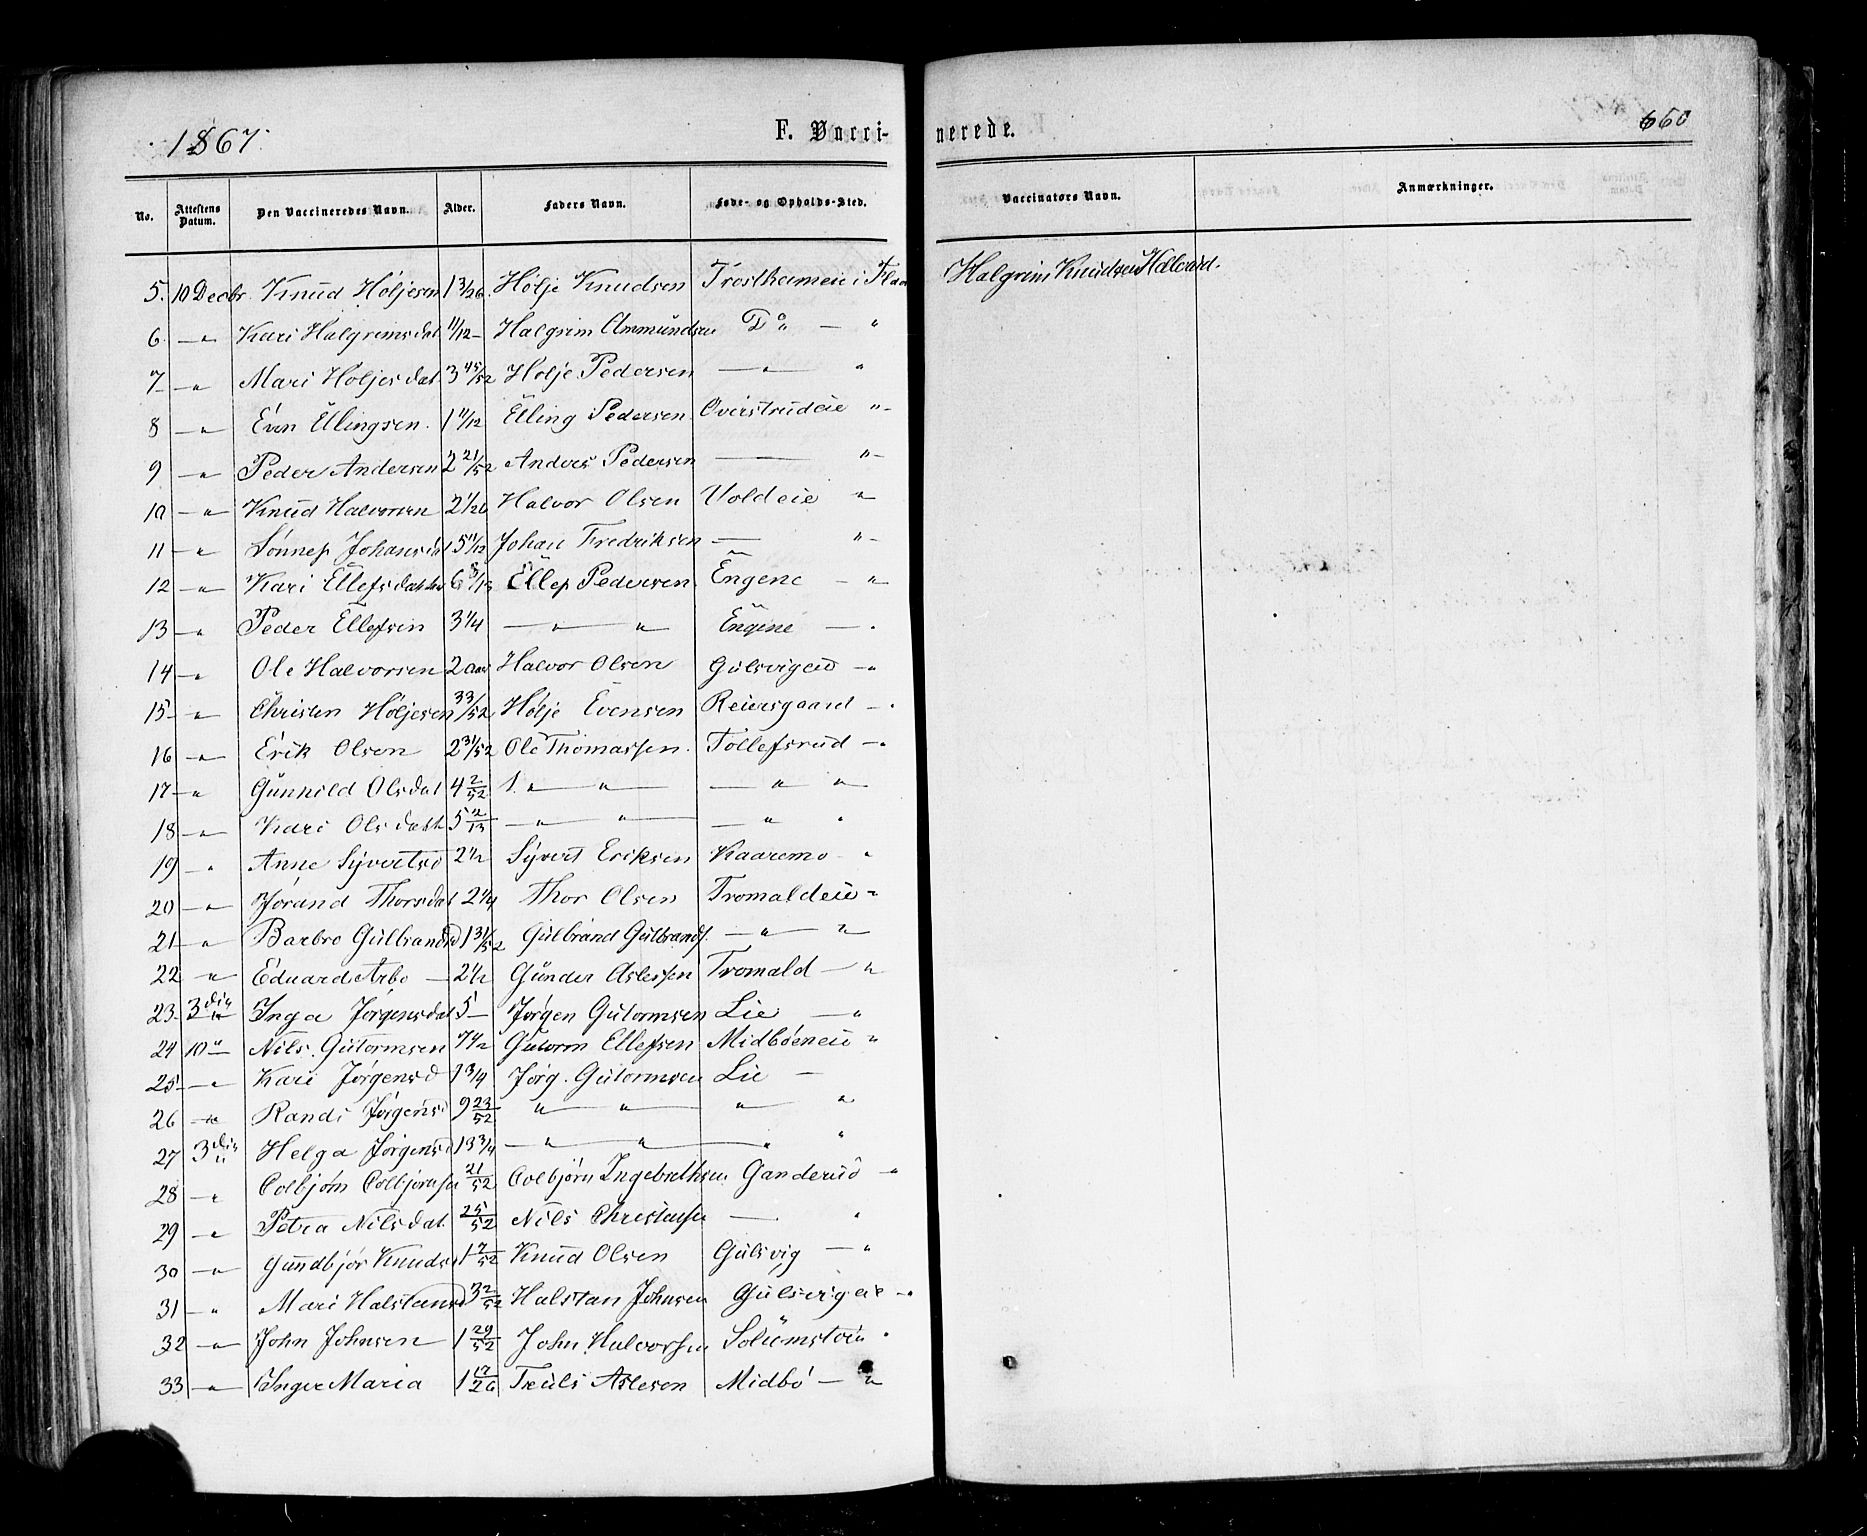 1867. F. Vacci- nerede. 660
No. Attestens Datum. Den Vaccineredes Navn. Alder. Faders Navn. Føde- og Opholds-Sted. Vaccinators Navn. Anmærkninger.
5. 10 Decbr. Knud Høljesen 1 3/26. Hølje Knudsen i Flaa Halgrim Knudsen
6. — " Kari Halgrimsdat 11/12 — Halgrim Ammundsen Do — "
7 — " Mari Høljesdat 3 45/52 Holje Pedersen — " — "
8 — " Even Ellingsen. 1 11/12 Elling Pedersen. " —
9 — " Peder Andersen 2 21/52 Anders Pedersen — " —
10 — " Knud Halvorsen 2 1/26 Halvor Olsen Voldeie "
11 — " Johansd 5 11/12 Johan Fredriksen — " —
12 — " Kari Ellefsdatter 6 /13 Ellef Pedersen Engene — "
13 — " Peder Ellefsen 3 1/4 — " — " Engene — .
14 — " Ole Halvorsen 2 aar Halvor Olsen Gulsvigeie — "
15 — " Christen Høljesen 33/52 Hølje Evensen Reiersgaard — .
16 — " Erik Olsen 2 31/52 Ole Thomassen. Tollefsrud — "
17 — " Gunnild Olsdat 4 2/52 " — " — — " "
18 — " Kari Olsdatt 5 2/13 — " — " — — " "
19 " Anne Syvertsd 2 1/2 Syvert Eriksen Kaaremo — "
20 — " Jørand Thorsdat 2 1/4 Thor Olsen Tromaldeie "
21 — " Barbro Gulbrandsd 1 31/52 Gulbrand Gulbrands. — " — "
22 — " Eduard Arbo — 2 1/2 Gunder Aslessen Tromald — "
23. 3die " Inga Jørgensdat 5 — Jørgen Gutormsen Lie — "
24 10 " Nils Gutormsen 7 1/2 Gutorm Ellefsen Midbøeneie "
25 — " Kari Jørgensd 1 3/4 Jørg. Gutormsen Lie —
26 — " Randi Jørgensd 9 23/52 " — " — " — "
27 3die " Helga Jørgensd 13 3/4 — " — " — " "
28 — " Colbjørn Colbjørnsen 21/52 Colbjørn Ingebrethsen Ganderud — "
29 — " Petra Nilsdat. 25/52 Nils Christensen — "
30 — " Gundbjør Knudsd 1 7/52 Knud Olsen Gulsvig — "
31 — " Mari Halstensd 3 2/52 Halstan Johnsen Gulsvigeie — "
32 — " John Johnsen 1 29/52 John Halvorsen "
33 — " Inger Maria 1 17/26 Truls Aslesen Midbø — "